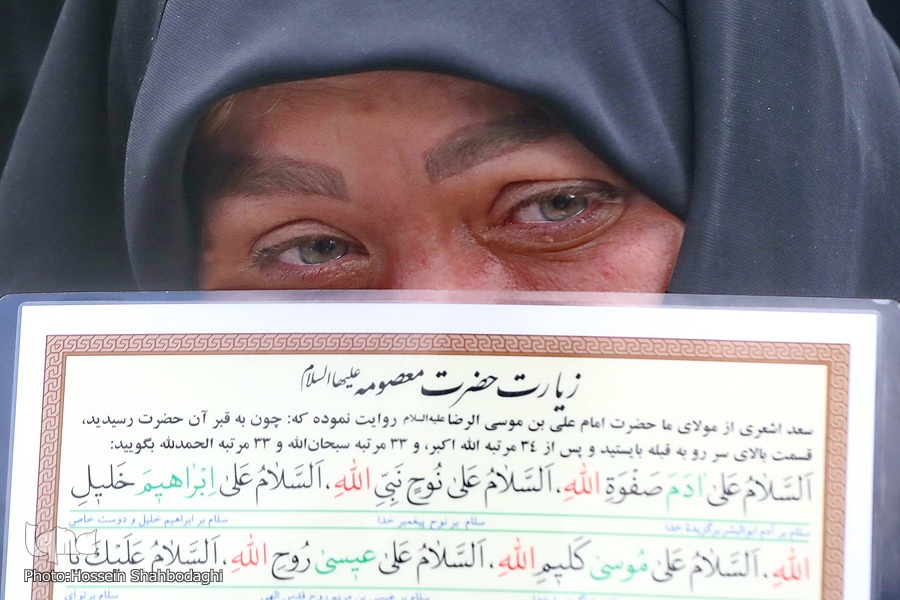 زیارت حضرت معصومه علیهاالسلام
سعد اشعری از مولای ما حضرت امام علی بن موسی الرضا علیه‌السلام روایت نموده که: چون به قبر آن حضرت رسیدید،
قسمت بالای سر رو به قبله بایستید و پس از ۳۴ مرتبه الله اکبر، و ۳۳ مرتبه سبحان‌الله و ۳۳ مرتبه الحمدلله بگویید:
اَلسَّلامُ عَلیٰ ادَمَ صَفْوَةِ اللهِ، اَلسَّلامُ عَلیٰ نُوحٍ نَبِیِّ اللهِ، اَلسَّلامُ عَلیٰ اِبْراهیمَ خَلیلِ
سلام بر آدم ابوالبشر برگزیدهٔ خدا سلام بر نوح پیغمبر خدا سلام بر ابراهیم خلیل و دوست خاص
اللهِ، اَلسَّلامُ عَلیٰ مُوسیٰ کَلیمِ اللهِ، اَلسَّلامُ عَلیٰ عیسیٰ رُوحِ اللهِ، اَلسَّلامُ عَلَیْکَ یا
سلام بر عیسی بن مریم روح قدس الهی سلام بر تو ای
Photo:Hossein Shahbodaghi